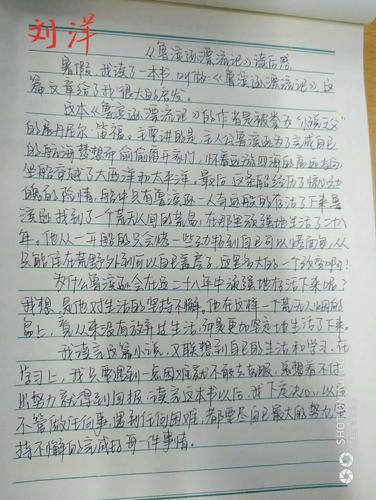 刘洋
《鲁滨逊漂流记》读后感
暑假,我读了一本书,叫做《鲁滨逊漂流记》,这
篇文章给了我很大的启发。
这本《鲁滨逊漂流记》的作者是被誉为“小说之父”
的丹尼尔·笛福。主要讲的是:主人公鲁滨逊为了完成自己
的航海梦想而偷偷离开家门,怀着远游四海的高远志向
坐船穿越了大西洋和太平洋。最后这条船经历了惊心动
魄的险情,船中只有鲁滨逊一人奇迹般的存活了下来鲁
滨逊找到了一个荒无人间的荒岛,在那里顽强地生活了二十八
年。他从一开始的只会烤一些动物到自己可以烤面包,从
只能住在荒野外到可以自己盖房子,这是多大的一个改变啊!
为什么鲁滨逊会在这二十八年中顽强地存活下来呢?
我想,是他对生活的坚持不懈。他在这样一个荒无人烟的
岛上,看从来没有放弃过生活,而是更加坚定地生活了下来。
我读完这篇小说,又联想到自己的生活和学习,在
学习上,我只要遇到一点困难就不敢去克服,总想着不付
出努力就得到回报,读完这本书以后,我下定决心,以后
不管做任何事,遇到任何困难,都要尽自己最大的努力,坚
持不懈的完成好每一件事情。
SHOT ON